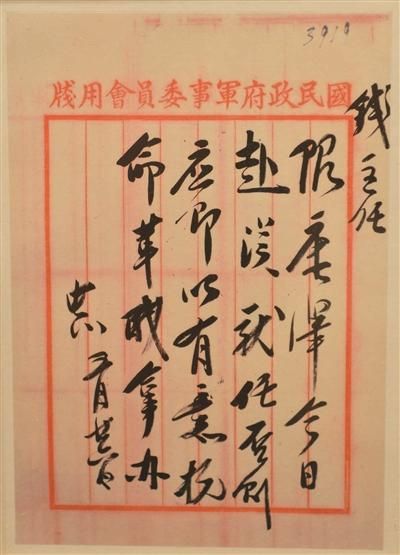 國民政府軍事委員會用牋
錢主任
限康澤今日
赴漢就任否則
应即以有意抗
命革職拿办
中正 五月